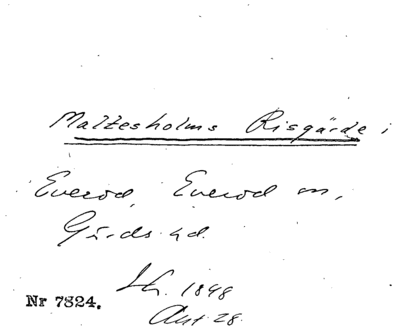 Maltesholms Risgärde i
Everöd, Everöd sn,
Gärds hd.
Lh. 1848
Nr 7824.
Akt 28.